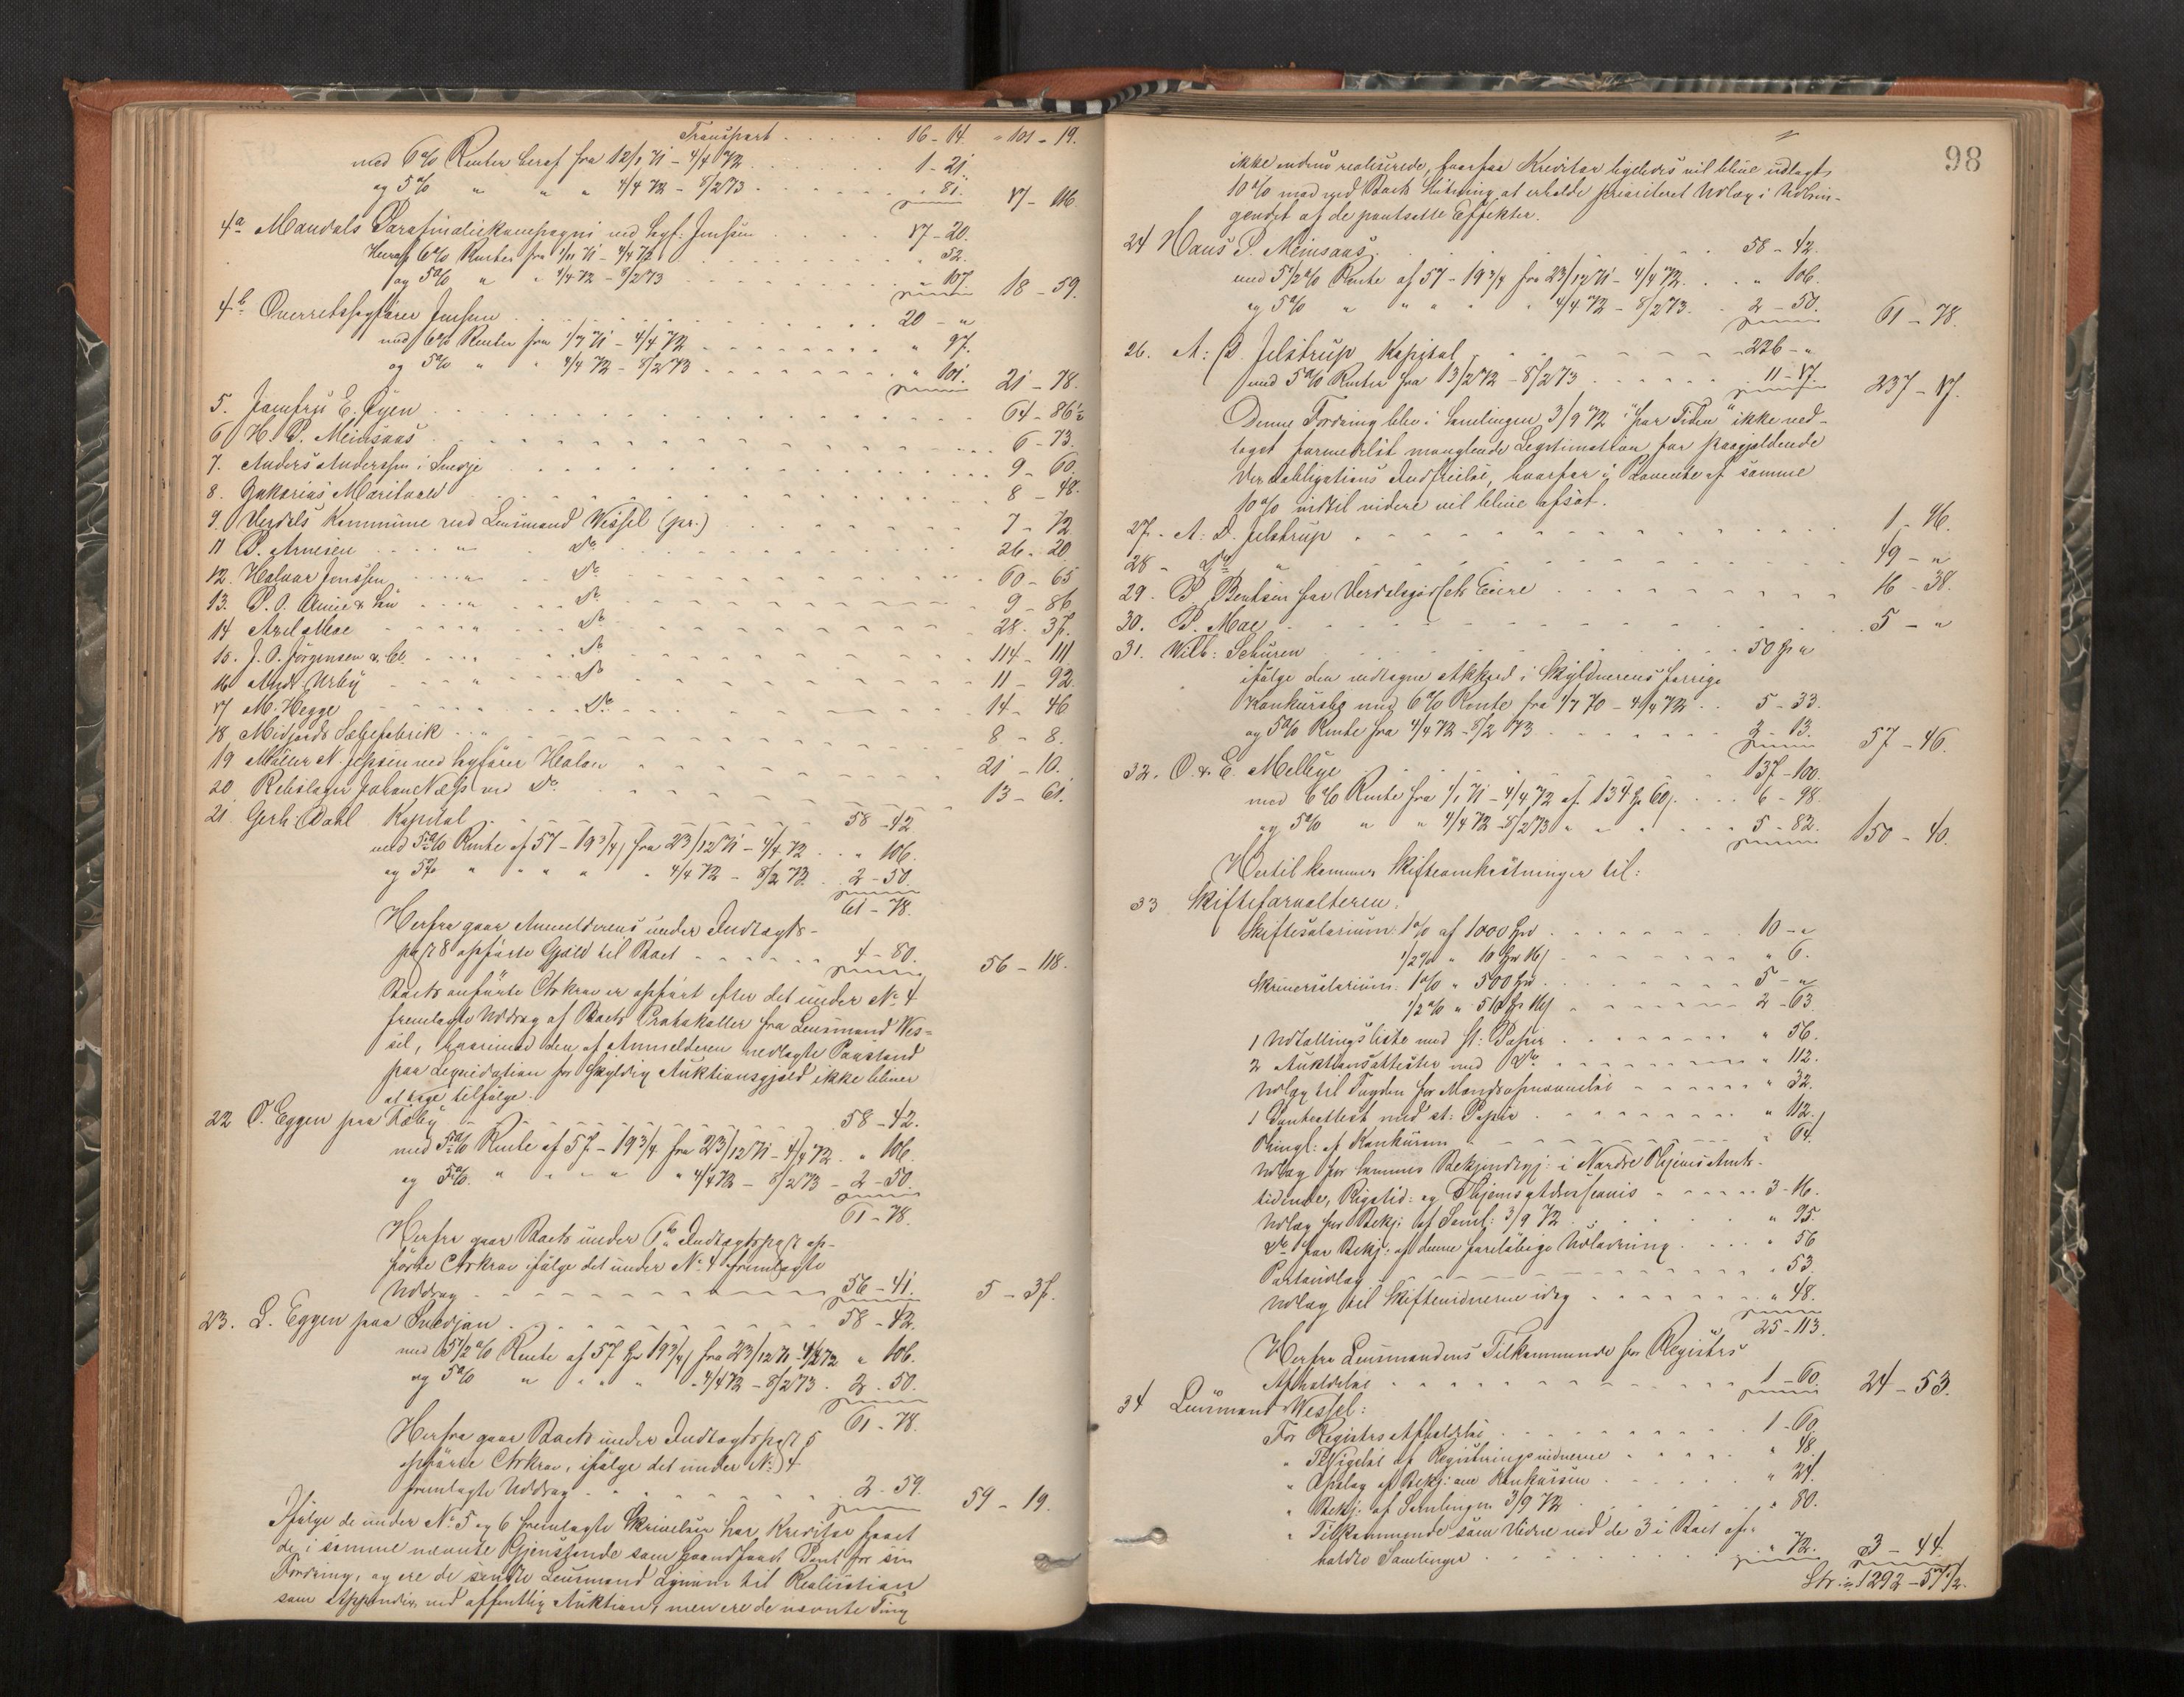 Transport . . . . . 16 - 14. " 101 - 19.
med 6% Renter heraf fra 12/1 71 - 4/4 72 . . . . 1 - 21.
og 5% " " " 4/4 72 - 8/2 73 . . . . " 81. 17 - 116.
4a Mandals Parafinoliekompagni ved Sagf: Jenssen . . . . 17 - 20.
Heraf 6% Renter fra 1/11 71 - 4/4 72 . . . . " 52.
og 5% " " 4/4 72 - 8/2 73 . . . . " 107. 18 - 59.
4b Overretssagfører Jenssen . . . . 20 - "
med 6% Renter fra 1/7 71 - 4/4 72 . . . . " 97.
og 5% " " 4/4 72 - 8/2 73 . . . . " 101. 21 - 78.
5. Jomfru E. Øyen . . . . 64 - 86 1/2
6 H. P. Meinsaas . . . . 6 - 73.
7. Anders Anderssen i Suerje . . . . 9 - 60.
8. Zakarias Moritvald . . . . 8 - 48.
9. Verdals Kommune ved Lensmand Wessel (pr.) . . . . 7 - 72
11 P. Arnesen . . . " Do . . . . 26 - 20
12. Halvar Jonssen . . . " Do . . . . 60 - 65
13. P. O. Aune & Søn . . . " Do . . . . 9 - 86
14 Axel Moe . . . " Do . . . . 28 - 37.
15. J. O. Jørgensen & Co. . . . " Do . . . . 114 - 111
16 Andr. Urby . . . " Do . . . . 11 - 92
17 M. Hegge . . . Do . . . . 14 - 46
18 Midjords Sæbefabrik . . " . . . . 8 - 8.
19 Møller N. Jepsen ved Sagfører Hoalon . . . . 21 - 10.
20 Rebslager Johan Næss ved Do. . . . . 13 - 61.
21. Gerh: Dahl Kapital . . . . 58 - 42
med 5½% Rente af 57 - 19 3/4 fra 23/12 71 - 4/4 72 . . " 106.
og 5% " " " " 4/4 72 - 8/2 73 . 2 - 50.
61 - 78.
Herfra gaar Anmelderens under Indtægts-
post 8 opførte Gjæld til Boet . . . . 4 - 80. 56 - 118.
Boets anførte Chrkrav er opført efter det under No 4
fremlagte Uddrag af Boets Protokoller fra Lensmand Wes-
sel, hvorimod den af Anmelderen nedlagte Paastand
paa Liquidation for skyldig Auktionsgjæld ikke bliver
at tage tilfølge.
22 O. Eggen paa Ræby . . . . 58 - 42.
med 5½% Rente af 57 - 19 3/4 fra 23/12 71 - 4/4 72 . " 106.
og 5% " " " " 4/4 72 - 8/2 73 - 2 - 50.
61 - 78.
Herfra gaar Boets under 6te Indtægtspost op-
førte Chrkrav ifølge det under No 4 fremlagte
Uddrag . . . . 56 - 41. 5 - 37.
23. L. Eggen paa Snedjan . . . . 58 - 42.
med 5 1/2% Rente af 57 Spd 19 3/4 fra 23/12 71 - 4/4 72 " 106.
og 5% " " " " 4/4 72 - 8/2 73 . 2 - 50.
61 - 78.
Herfra gaar Boets under Indtægtspost 5
opførte Chrkrav, ifølge det under No 4
fremlagte Uddrag . . . . 2 - 59. 59 - 19.
Ifølge de under No 5 og 6 fremlagte Skrivelser har Kreditor faaet
de i samme nævnte Gjenstande som haandfaaet Pant for sin
Fordring, og ere de sendte Lensmand til Realisation
som ved offentlig Auktion, men ere de nævnte Ting
98
ikke endnu realiserede, hvorfor Kreditor ligeledes vil blive udlagt
10% mod ved Boets Slutning at erholde prioriteret Udlæg i Udbrin-
gendet af de pantsatte Effekter.
24 Hans P. Meinsaas . . . . 58 - 42.
med 5 1/2% Rente af 57 - 19 3/4 fra 23/12 71 - 4/4 72 . . " 106.
og 5% " " " " 4/4 72 - 8/2 73 . 2 - 50. 61 - 78.
26. A: D. Jelstrup Kapital . . . . 226 - "
med 5% Renter fra 13/2 72 - 8/2 73 . . . . 11 - 17. 237 - 17.
Denne Fordring blev i Samlingen 3/9 72 "for Tiden" ikke ved-
taget formedelst manglende Legitimation for paagjældende
obligations Indfrielse, hvorfor i af samme
10% indtil videre vil blive afsat.
27. A: D. Jelstrup . . . . 1 - 46.
28 - Do " . . . . 49 - "
29. P. Bentsen for Verdalsgodsets Eiere . . . . 16 - 38.
30. P. Mae . . . . 5 - "
31. Wilh: Schüren . . . . 50 Spd "
ifølge den vedtagne Akkord i Skyldnerens forrige
Konkursbo med 6% Rente fra 4/7 70 - 4/4 72 . . 5 - 33.
og 5% Rente fra 4/4 72 - 8/2 73 . . . . 2 - 13. 57 - 46.
32. O. & E. Mellbye . . . . 137 - 100.
med 6% Rente fra 1/1 71 - 4/4 72 af 134 Spd 60 . . . 6 - 98.
og 5% " " 4/4 72 - 8/2 73 " " . . . 5 - 82. 150 - 40.
Hertil kommer Skifteomkostninger til:
33 Skifteforvalteren:
Skiftesalarium: 1% af 1000 Spd . . . . 10 - "
1/2% " 10 Spd 16 . . . . " 6.
Skriversalarium: 1% " 500 Spd . . . . 5 - "
1/2% " 510 Spd 16 . . . . 2 - 63
1 Udtallingsliste med st: Papir . . . . " 56.
2 Auktionsattester med Do . . . . " 112.
Udlæg til Fogden for Mandsopnævnelse . . . . " 32.
1 Panteattest med st: Papir . . . . " 112.
Thingl: af Konkursen . . . . " 64.
Udlæg for sammes Bekjendtgj: i Nordre Thjems Amts-
tidende, Rigstid: og Thjems Adresseavis . . . . 3 - 16.
Udlæg for Bekj: af Saml: 3/9 72 . . . . " 95.
Do for Bekj: af denne foreløbige Udlodning . . . . " 56
Portoudlæg . . . . " 53
Udlæg til Skiftevidnerne idag . . . . " 48.
25 - 113.
Herfra Lensmandens Tilkommende for Registrs
Afholdelse . . . . 1 - 60. 24 - 53.
34 Lensmand Wessel:
For Registrs Afholdelse . . . . 1 - 60.
" af Registreringsvidnerne . . . . " 48.
" Opslag af Bekj: om Konkursen . . . . " 24.
" Bekj: af Samlingen 3/9 72 . . . . " 80.
" Tilkommende som Vidne ved de 3 i Boet af-
holdte Samlinger . . . . " 72. 3 - 44.
Str: 1292 - 57 1/2.